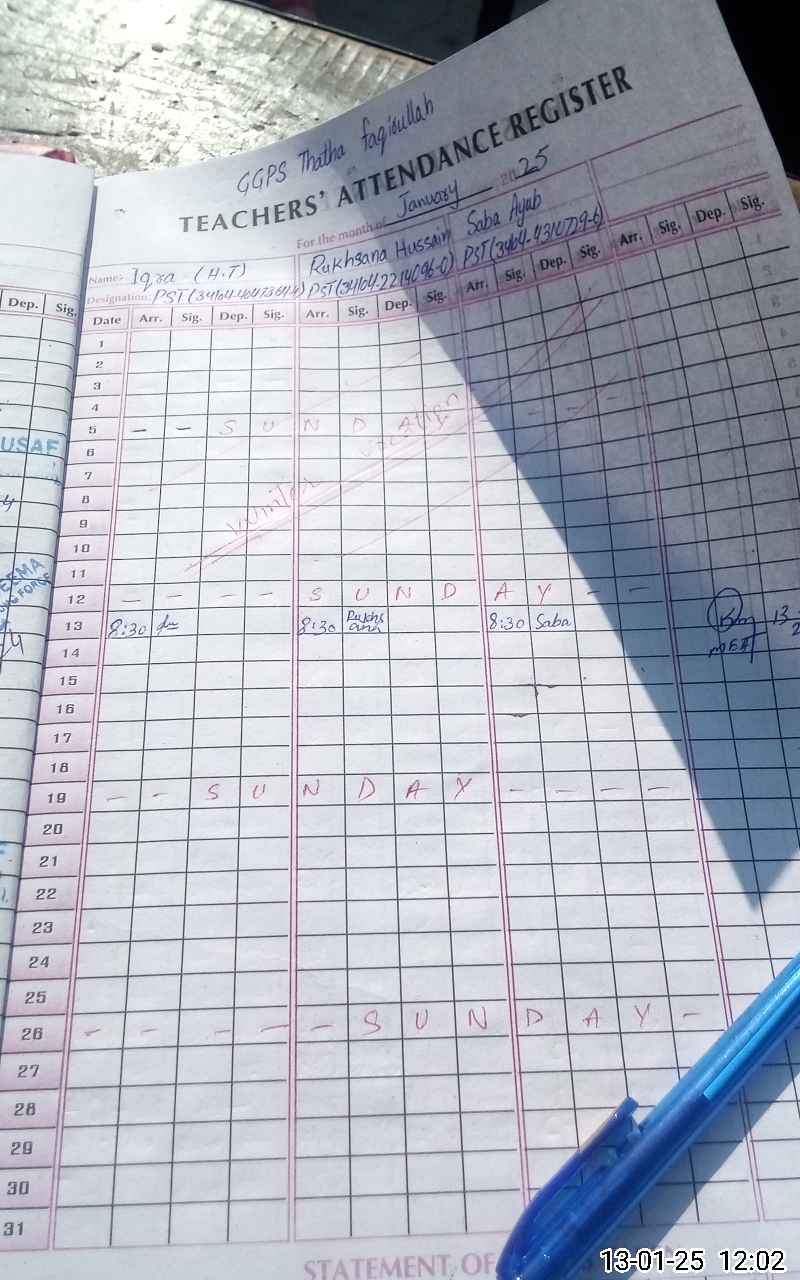 GGPS Thatha Faqirullah
TEACHERS' ATTENDANCE REGISTER
For the month of January 2025
Name:- Iqra (H.T) Rukhsana Hussain Saba Ayab
Designation: PST PST PST
Dep. Sig.
Date Arr. Sig. Dep. Sig. Arr. Sig. Dep. Sig. Arr. Sig. Dep. Sig. Arr. Sig. Dep. Sig.
1
2
3
4
5 - - S U N D A Y - - - -
6
7
8
9
10
11
Winter vacation
12 - - - - S U N D A Y - -
13 8:30 8:30 Rukhsana 8:30 Saba
14
15
16
17
18
19 - - S U N D A Y - - - -
20
21
22
23
24
25
26 - - - - - S U N D A Y -
27
28
29
30
31
USAF
STATEMENT OF
13-01-25 12:02